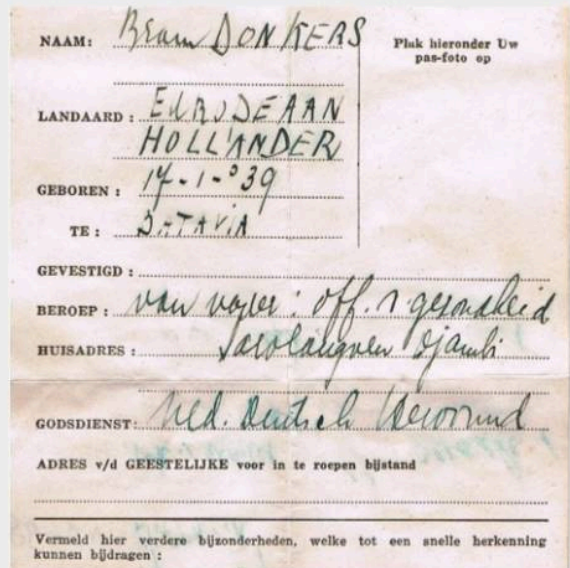 NAAM: Bram DONKERS
Plak hieronder Uw
pas-foto op
LANDAARD: EUROPEAAN
HOLLANDER
GEBOREN: 17-1-'39
TE: BATAVIA
GEVESTIGD:
BEROEP: van vader: off. v. gezondheid
HUISADRES: Sarolangoen Djambi
GODSDIENST: Ned. Hervormd
ADRES v/d GEESTELIJKE voor in te roepen bijstand
Vermeld hier verdere bijzonderheden, welke tot een snelle herkenning
kunnen bijdragen: